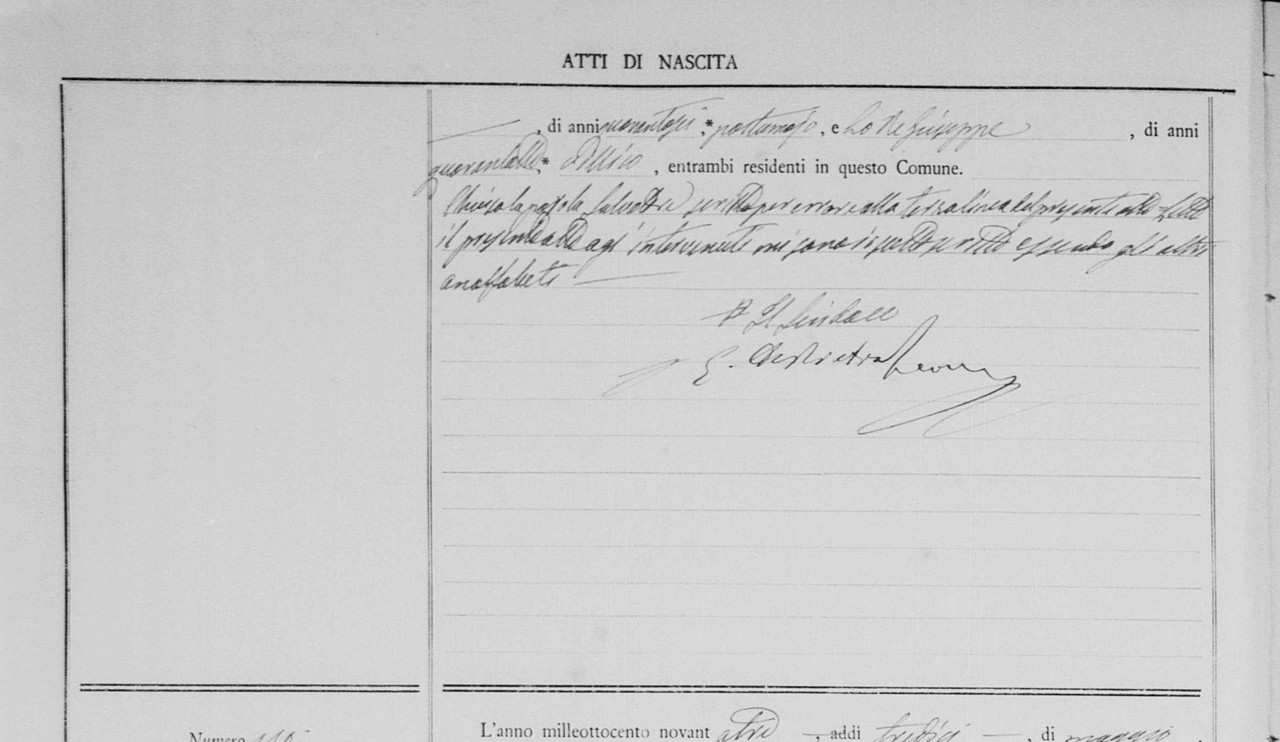 ATTI DI NASCITA
, di anni quarantasei, postumajo, e Lo Re Giuseppe, di anni
quarantotto, entrambi residenti in questo Comune.
Chiusa la parola Salvatore scritta per errore alla terza linea del presente atto. Letto
il presente atto agl'intervenuti mi sono io sottoscritto essendo gli altri
analfabeti
Il Sindaco
E.
L'anno milleottocento novantatre, addì tredici, di maggio,
Numero 110